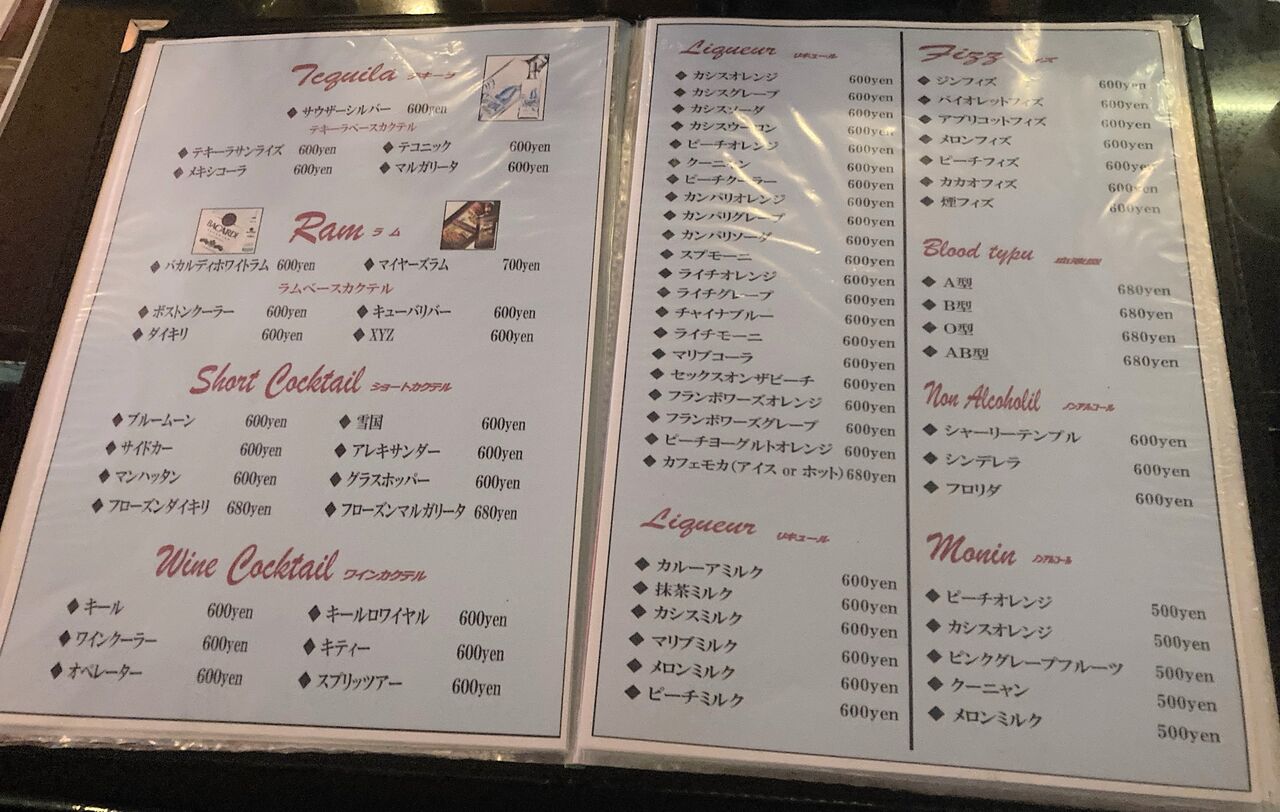 Tequila テキーラ
◆サウザーシルバー 600yen
テキーラベースカクテル
◆テキーラサンライズ 600yen ◆テコニック 600yen
◆メキシコーラ 600yen ◆マルガリータ 600yen
BACARDI
Ram ラム
◆バカルディホワイトラム 600yen ◆マイヤーズラム 700yen
ラムベースカクテル
◆ボストンクーラー 600yen ◆キューバリバー 600yen
◆ダイキリ 600yen ◆XYZ 600yen
Short Cocktail ショートカクテル
◆ブルームーン 600yen ◆雪国 600yen
◆サイドカー 600yen ◆アレキサンダー 600yen
◆マンハッタン 600yen ◆グラスホッパー 600yen
◆フローズンダイキリ 680yen ◆フローズンマルガリータ 680yen
Wine Cocktail ワインカクテル
◆キール 600yen ◆キールロワイヤル 600yen
◆ワインクーラー 600yen ◆キティー 600yen
◆オペレーター 600yen ◆スプリッツアー 600yen
Liqueur リキュール
◆カシスオレンジ 600yen
◆カシスグレープ 600yen
◆カシスソーダ 600yen
◆カシスウーロン 600yen
◆ピーチオレンジ 600yen
◆クーニャン 600yen
◆ピーチクーラー 600yen
◆カンパリオレンジ 600yen
◆カンパリグレープ 600yen
◆カンパリソーダ 600yen
◆スプモーニ 600yen
◆ライチオレンジ 600yen
◆ライチグレープ 600yen
◆チャイナブルー 600yen
◆ライチモーニ 600yen
◆マリブコーラ 600yen
◆セックスオンザビーチ 600yen
◆フランボワーズオレンジ 600yen
◆フランボワーズグレープ 600yen
◆ピーチヨーグルトオレンジ 600yen
◆カフェモカ(アイス or ホット) 680yen
Liqueur リキュール
◆カルーアミルク 600yen
◆抹茶ミルク 600yen
◆カシスミルク 600yen
◆マリブミルク 600yen
◆メロンミルク 600yen
◆ピーチミルク 600yen
Fizz フィズ
◆ジンフィズ 600yen
◆バイオレットフィズ 600yen
◆アプリコットフィズ 600yen
◆メロンフィズ 600yen
◆ピーチフィズ 600yen
◆カカオフィズ 600yen
◆煙フィズ 600yen
Blood typu 血液型
◆A型 680yen
◆B型 680yen
◆O型 680yen
◆AB型 680yen
Non Alcoholil ノンアルコール
◆シャーリーテンプル 600yen
◆シンデレラ 600yen
◆フロリダ 600yen
Monin ノンアルコール
◆ピーチオレンジ 500yen
◆カシスオレンジ 500yen
◆ピンクグレープフルーツ 500yen
◆クーニャン 500yen
◆メロンミルク 500yen